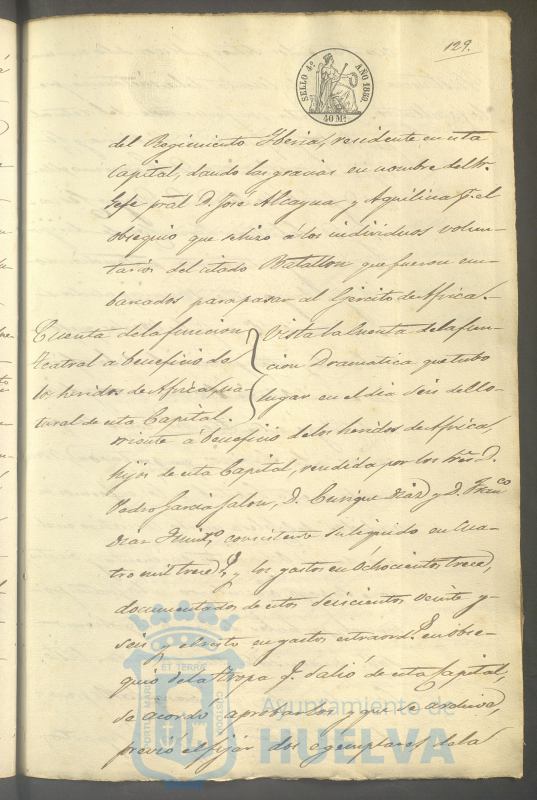 129.
SELLO 4º AÑO 1860
40 Ms
del Regimiento Iberia, residente en esta
Capital, dando las gracias en nombre del Sr.
Gefe pral. D. José Alcayna y Aquilina pr. el
obsequio que se hizo á los individuos volun-
tarios del citado Batallon que fueron em-
barcados para pasar al Ejército de Africa.
Cuenta de la funcion
teatral á beneficio de
los heridos de Africa, na-
tural de esta Capital.
Vista la Cuenta de la fun-
cion Dramatica que tubo
lugar en el dia seis del co-
rriente á beneficio de los heridos de Africa,
hijos de esta Capital, rendida por los Sres. D.
Pedro Garcia Jalon, D. Enrique Diaz y D. Franco
Diaz consistente su liquido en cua-
tro mil trece rs. y los gastos en ochocientos trece,
documentados de estos seiscientos veinte y
seis y el resto en gastos estraords. en obse-
quio de la Tropa qe. salió de esta Capital,
se acordó aprobarlos y que se archive,
previo el fijar dos egemplares de la
ET TERRÆ
PORTUS MARIS
CUSTODIA
Ayuntamiento de
HUELVA